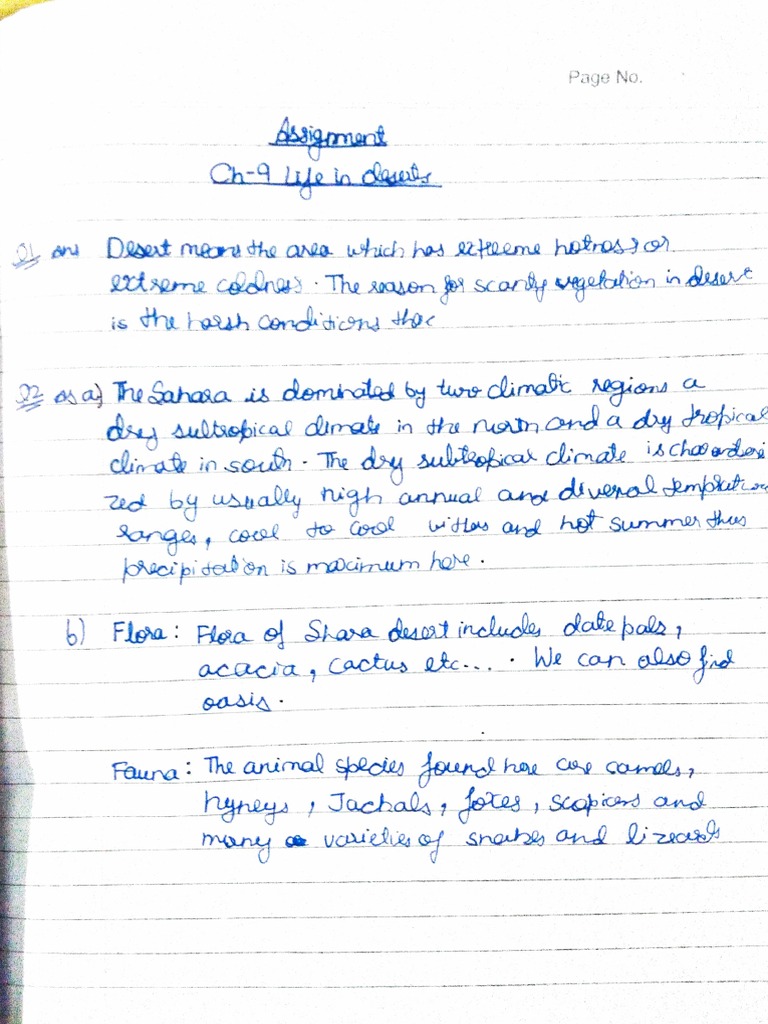 Page No.
Assignment
Ch-9 Life in deserts
Q1 ans Desert means the area which has extreeme hotness or
extreme coldness. The reason for scanty vegetation in desert
is the harsh conditions
Q2 as a) The Sahara is dominated by two climatic regions a
dry subtropical climate in the north and a dry tropical
climate in south. The dry subtropical climate is
zed by usually high annual and
ranges, cool to cool and hot summer thus
precipitation is maximum here.
b) Flora: Flora of Shara desert includes date pals,
acacia, cactus etc.... We can also find
oasis.
Fauna: The animal species found here are camels,
hyneys, Jachals, foxes, and
many varieties of snakes and lizards